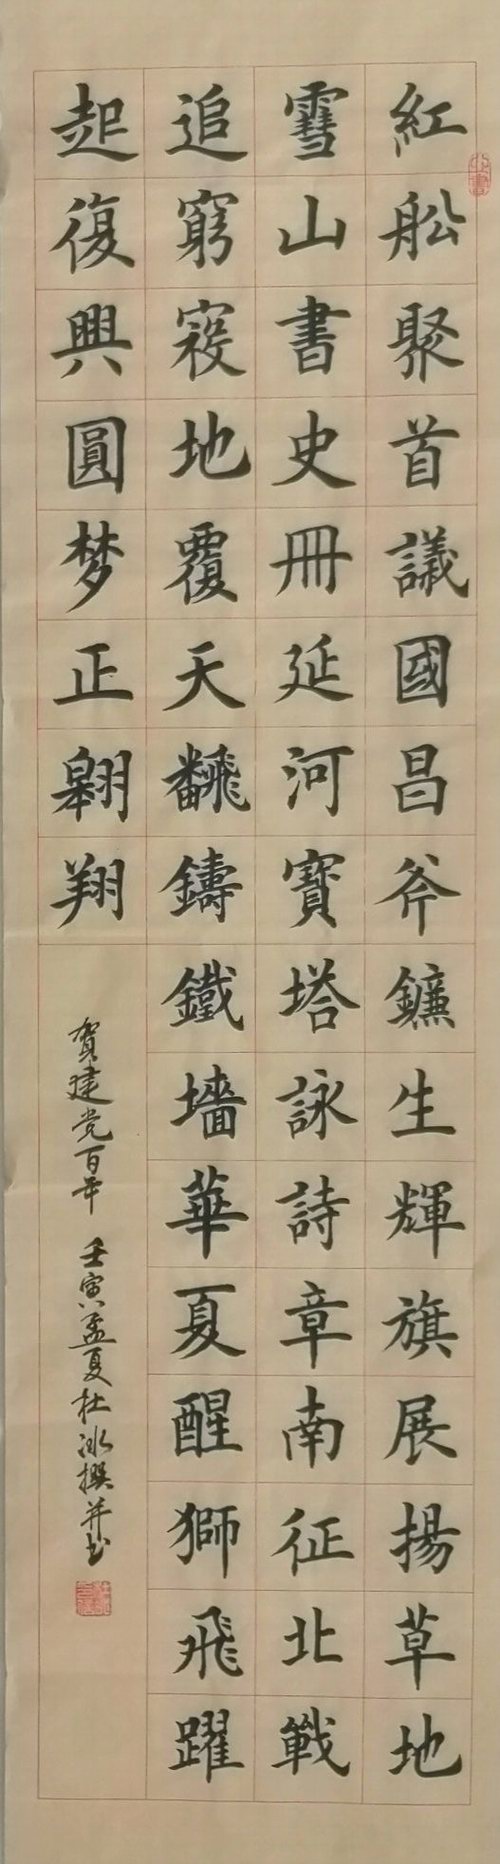 紅舩聚首議國昌斧鐮生輝旗展揚草地
雪山書史冊延河寳塔詠詩章南征北戰
追窮寇地覆天飜鑄鐵墻華夏醒獅飛躍
起復興圓梦正翺翔
贺建党百年 壬寅孟夏杜冰撰并书